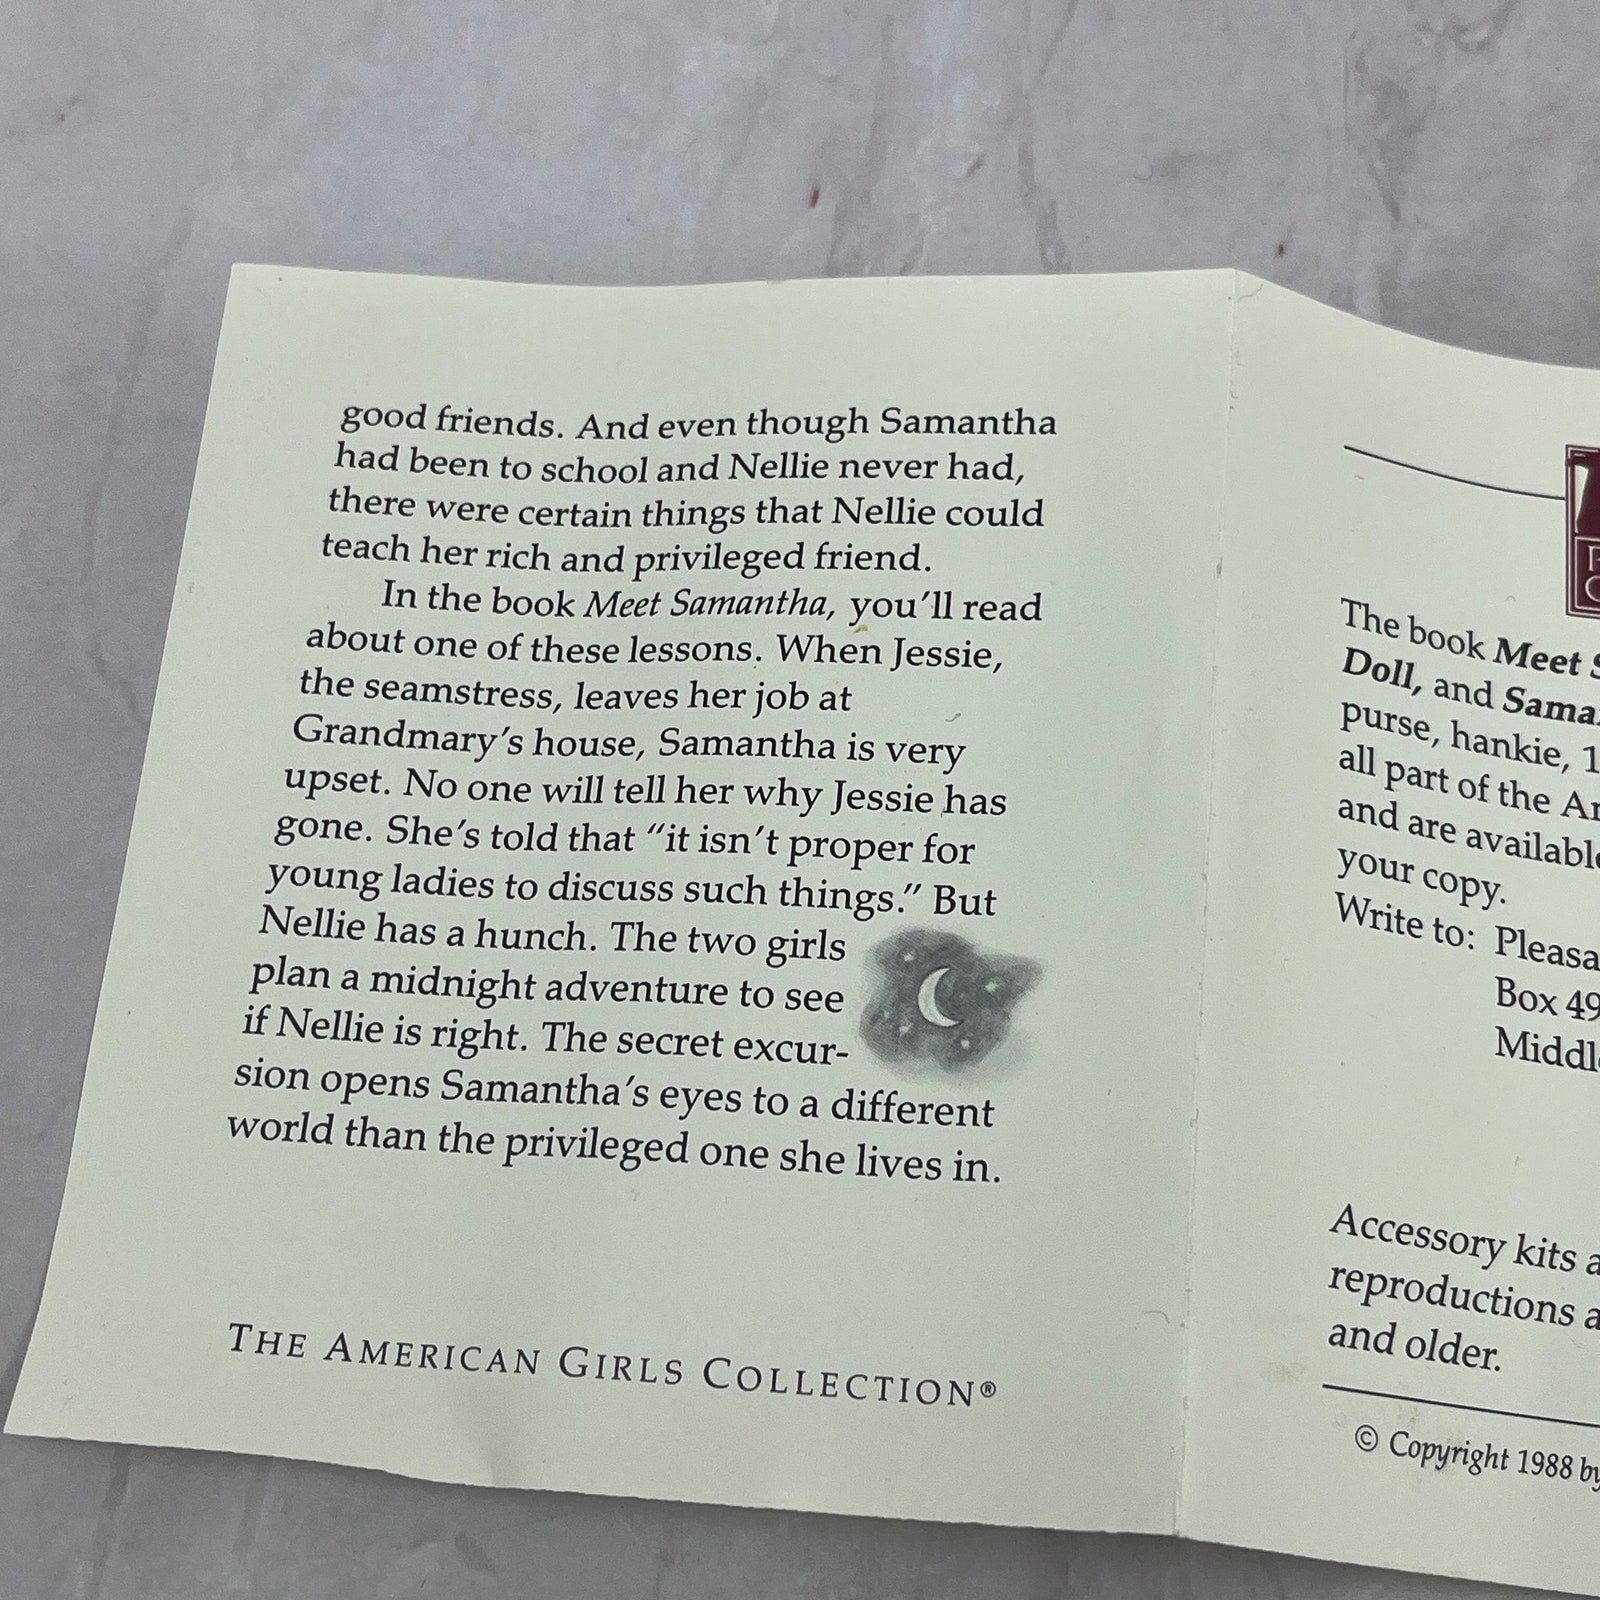 good friends. And even though Samantha
had been to school and Nellie never had,
there were certain things that Nellie could
teach her rich and privileged friend.
In the book Meet Samantha, you'll read
about one of these lessons. When Jessie,
the seamstress, leaves her job at
Grandmary's house, Samantha is very
upset. No one will tell her why Jessie has
gone. She's told that "it isn't proper for
young ladies to discuss such things." But
Nellie has a hunch. The two girls
plan a midnight adventure to see
if Nellie is right. The secret excur-
sion opens Samantha's eyes to a different
world than the privileged one she lives in.
THE AMERICAN GIRLS COLLECTION®
The book Meet
Doll, and
purse, hankie,
all part of the
and are
your copy.
Write to:
Box
Accessory kits
reproductions
and older.
© Copyright 1988 by